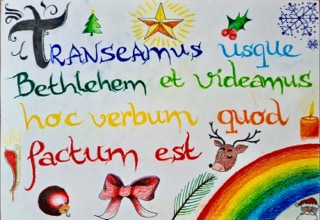 Transeamus usque
Bethlehem et videamus
hoc verbum quod
factum est